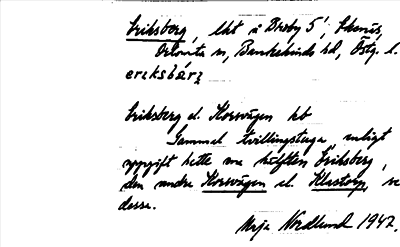 Eriksberg, lht i Broby 5¹, Skenäs,
Östra n, Bankekinds hd, Östg. l.
ericksbärg
Eriksberg el. Korsvägen hb
Gammal tvillingstuga, enligt
uppgift hette ena hälften Eriksberg,
den andra Korsvägen el. Klastorp, se
dessa.
Maja Nordlund 1942.